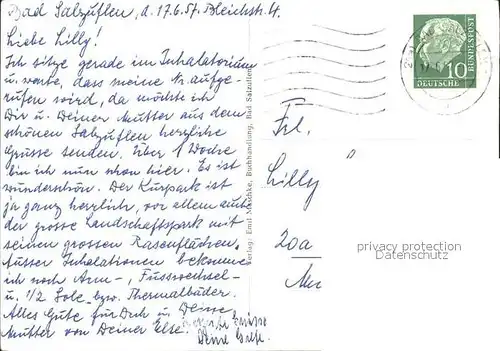 Bad Salzuflen, d. 17.6.57. Bleichstr. 4.
Liebe Lilly!
Ich sitze gerade im Inhalatorium
u. warte, dass meine Nr. aufge-
rufen wird, da möchte ich
Dir u. Deiner Mutter aus dem
schönen Salzuflen herzliche
Grüsse senden. Über 1 Woche
bin ich nun schon hier. Es ist
wunderschön. Der Kurpark ist
ja ganz herrlich, vor allem auch
der grosse Landschaftspark mit
seinen grossen Rasenflächen.
Ausser Inhalationen bekomme
ich noch Arm-, Fusswechsel-
u. 1/2 Sole bzw. Thermalbäder.
Alles Gute für Dich u. Deine
Mutter von Deiner Else.
Deine
Verlag: Emil Buchhandlung, Bad Salzuflen
10
DEUTSCHE
BUNDESPOST
Frl.
Lilly
20a
privacy protection